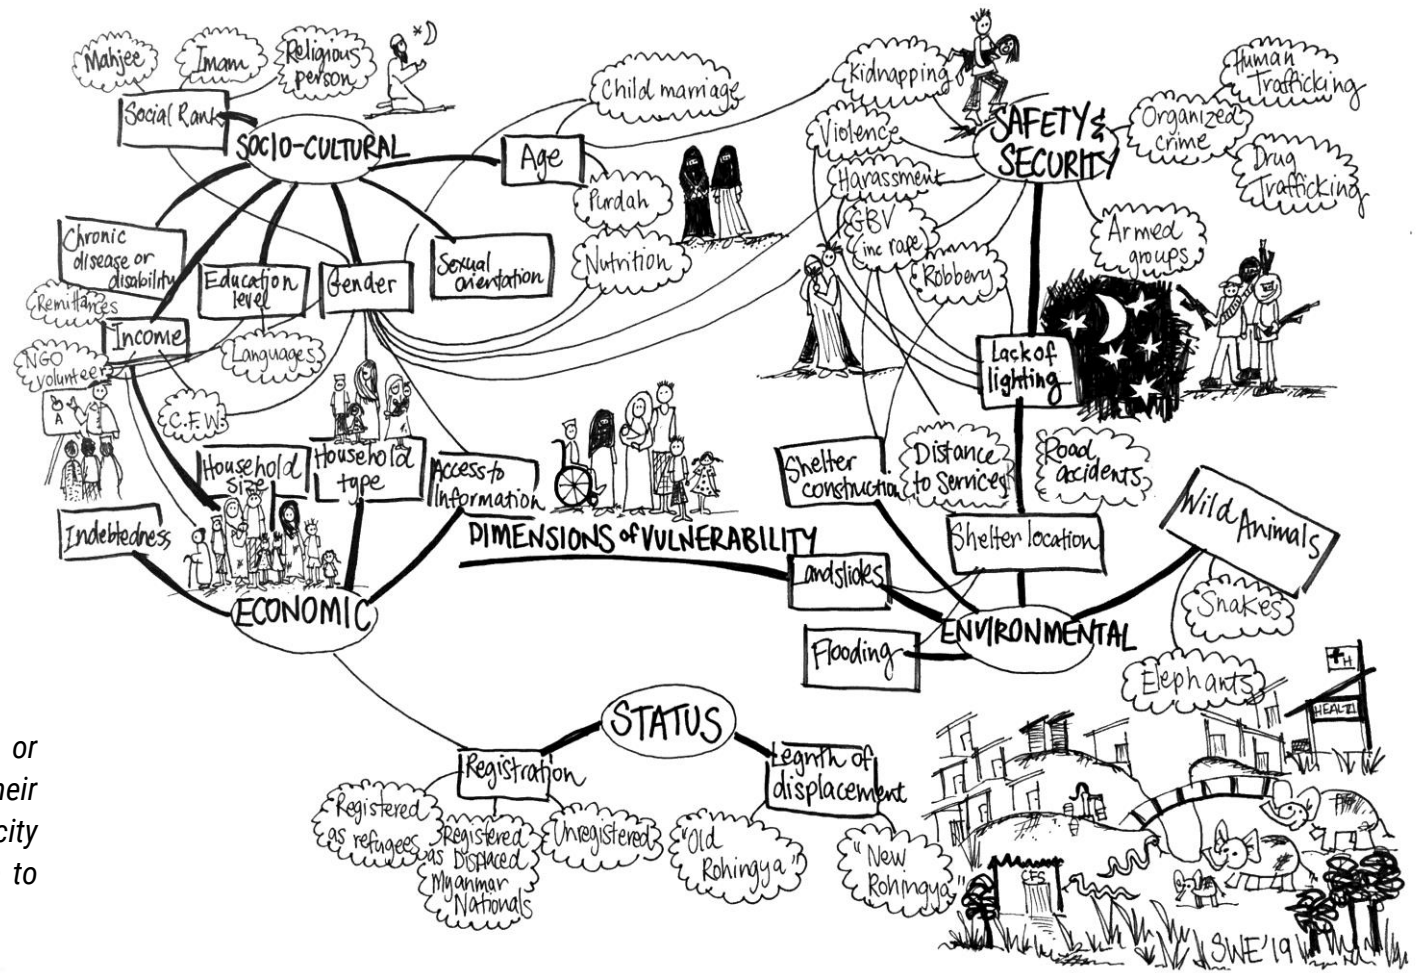 Mahjee
Imam
Religious
person
Social Rank
SOCIO-CULTURAL
Age
Child marriage
Purdah
Nutrition
Chronic
disease or
disability
Education
level
Gender
Sexual
orientation
Remittances
Income
NGO
volunteer
Languages
C.F.W.
B
A
Household
size
Household
type
Access to
Information
Indebtedness
ECONOMIC
DIMENSIONS of VULNERABILITY
Kidnapping
Violence
Harassment
GBV
inc rape
Robbery
SAFETY &
SECURITY
Organized
crime
Human
Trafficking
Drug
Trafficking
Armed
groups
Lack of
lighting
Shelter
construction
Distance
to Services
Road
accidents
Shelter location
Wild Animals
Landslides
Flooding
ENVIRONMENTAL
Snakes
Elephants
STATUS
Registration
Legnth of
displacement
Registered
as refugees
Registered
as Displaced
Myanmar
Nationals
Unregistered
"Old
Rohingya"
"New
Rohingya"
+H
HEALTH
CFS
SWE'19
or
heir
city
to